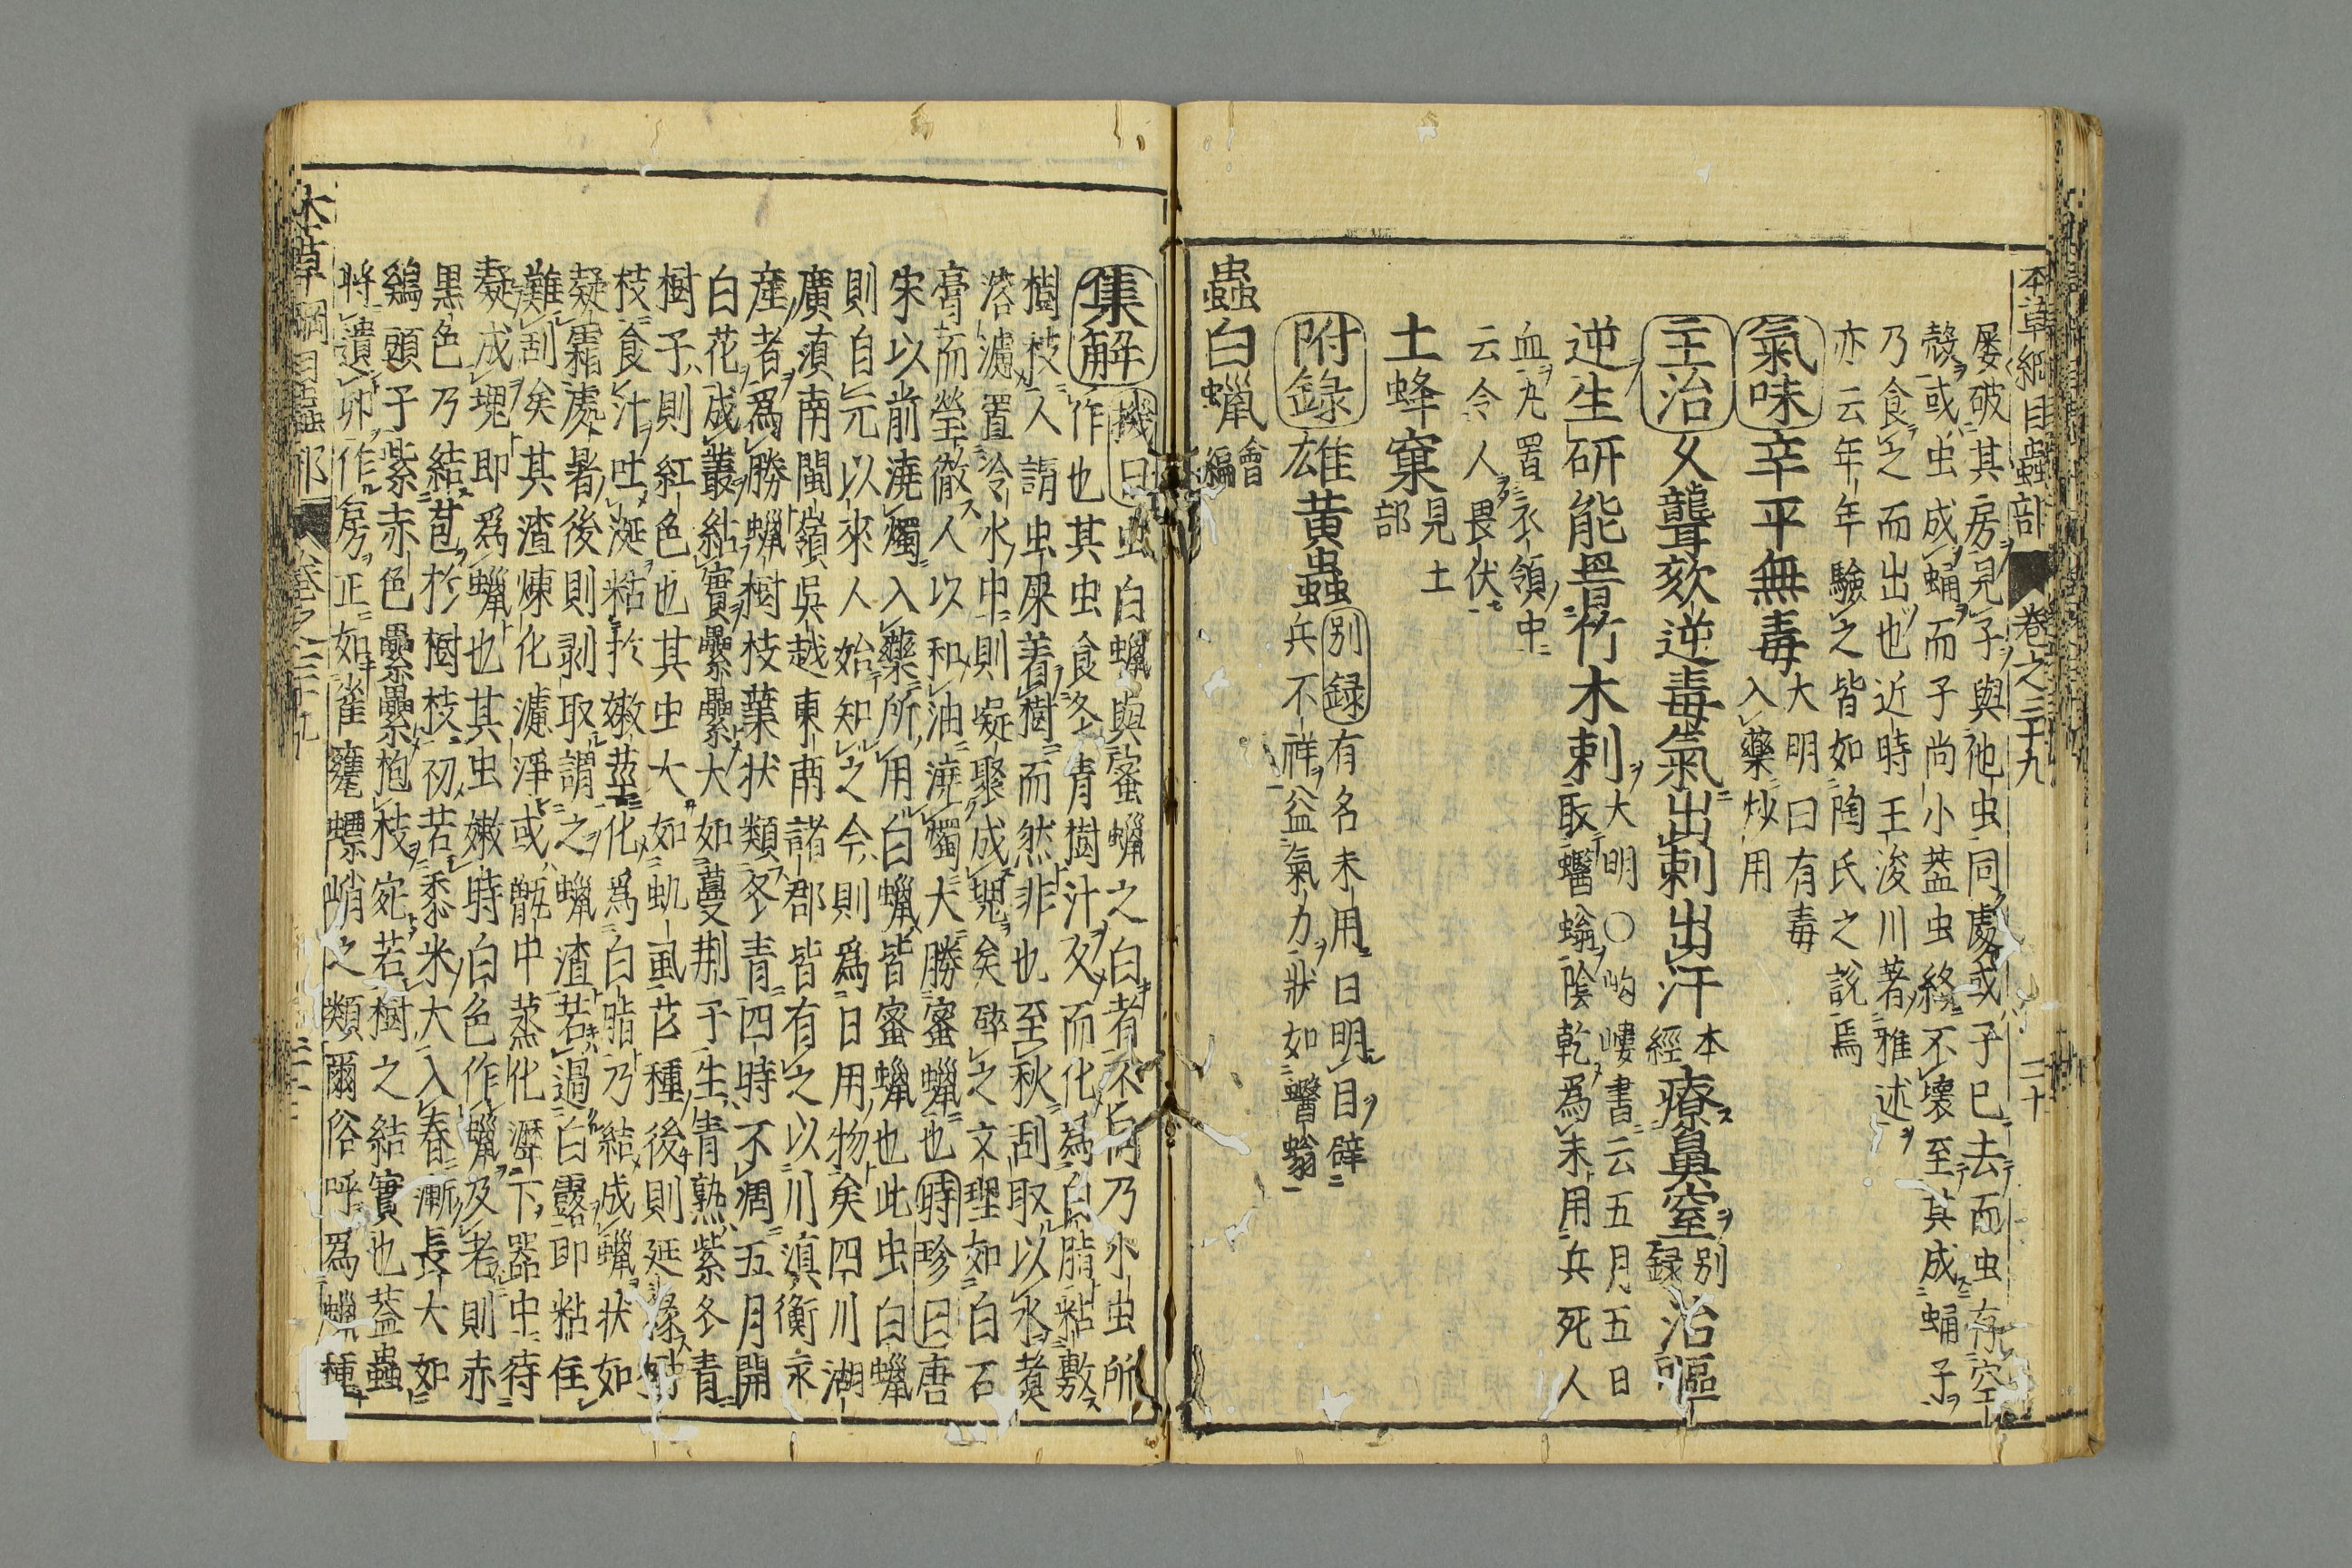 本草綱目蟲部 卷之三十九 二十
屡破其房見子與他虫同處或子已去而虫存空
殼或虫成蛹而子尚小蓋虫終不壊至其成蛹子
乃食之而出也近時王浚川著雅述
亦云年年驗之皆如陶氏之說焉
氣味辛平無毒大明曰有毒
入藥炒用
主治久聾欬逆毒氣出刺出汗本經療鼻窒別録治嘔
逆生研能罯竹木刺大明〇岣嶁書云五月五日
取蠮螉陰乾爲末用兵死人
血丸置衣領中
云令人畏伏
土蜂窠見土部
附錄雄黄蟲別録有名未用曰明目辟
兵不祥益氣力狀如蠮螉
蟲白蠟會編
集解機曰虫白蠟與蜜蠟之白者不同乃小虫所
作也其虫食冬青樹汁久而化爲白脂粘敷
樹枝人謂虫屎着樹而然非也至秋刮取以水煑
溶濾置冷水中則凝聚成塊矣碎之文理如白石
膏而瑩徹人以和油澆燭大勝蜜蠟也時珍曰唐
宋以前澆燭入藥所用白蠟皆蜜蠟也此虫白蠟
則自元以來人始知之今則爲日用物矣四川湖
廣滇南閩嶺吳越東南諸郡皆有之以川滇衡永
産者爲勝蠟樹枝葉狀類冬青四時不凋五月開
白花成叢結實纍纍大如蔓荆子生青熟紫冬青
樹子則紅色也其虫大如虮虱芒種後則延緣樹
枝食汁吐涎粘於嫩莖化爲白脂乃結成蠟狀如
凝霜處暑後則剥取謂之蠟渣若過白露卽粘住
難刮矣其渣煉化濾淨或甑中蒸化瀝下器中待
凝成塊即爲蠟也其虫嫩時白色作蠟及老則赤
黒色乃結苞於樹枝初若黍米大入春漸長大如
鷄頭子紫赤色纍纍抱枝宛若樹之結實也蓋蟲
將遺卵作房正如雀甕螵蛸之類爾俗呼爲蠟種
本草綱目蟲部 卷之三十九